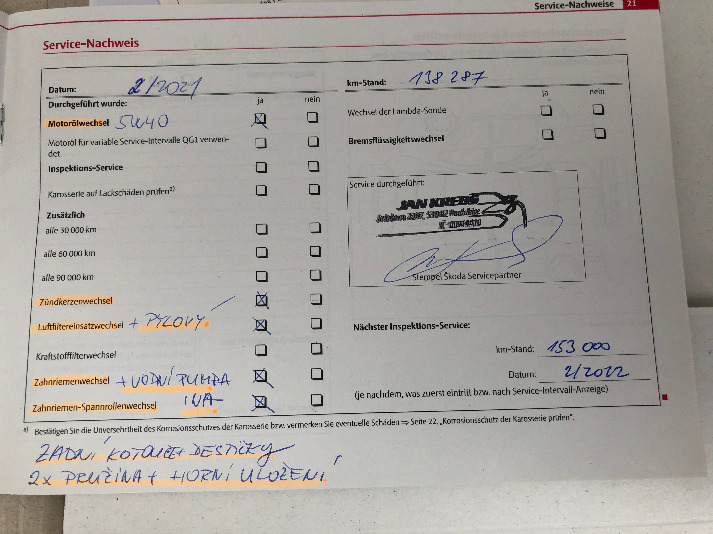 Service-Nachweise 21
Service-Nachweis
Datum: 2/2021
km-Stand: 138 287
Durchgeführt wurde: ja nein
ja nein
Motorölwechsel 5W40
Wechsel der Lambda-Sonde
Motoröl für variable Service-Intervalle QG1 verwen-
det
Bremsflüssigkeitswechsel
Inspektions-Service
Karosserie auf Lackschäden prüfen a)
Zusätzlich
alle 30 000 km
alle 60 000 km
alle 90 000 km
Service durchgeführt:
JAN KREBS
Stempel Škoda Servicepartner
Zündkerzenwechsel
Luftfiltereinsatzwechsel + PYLOVÝ
Kraftstofffilterwechsel
Zahnriemenwechsel + VODNÍ PUMPA
Zahnriemen-Spannrollenwechsel INA
Nächster Inspektions-Service:
km-Stand: 153 000
Datum: 2/2022
(je nachdem, was zuerst eintritt bzw. nach Service-Intervall-Anzeige)
a) Bestätigen Sie die Unversehrtheit des Korrosionsschutzes der Karosserie bzw. vermerken Sie eventuelle Schäden ⇒ Seite 22, „Korrosionsschutz der Karosserie prüfen".
ZADNÍ KOTOUČE+ DESTIČKY
2x PRUŽINA + HORNÍ ULOŽENÍ